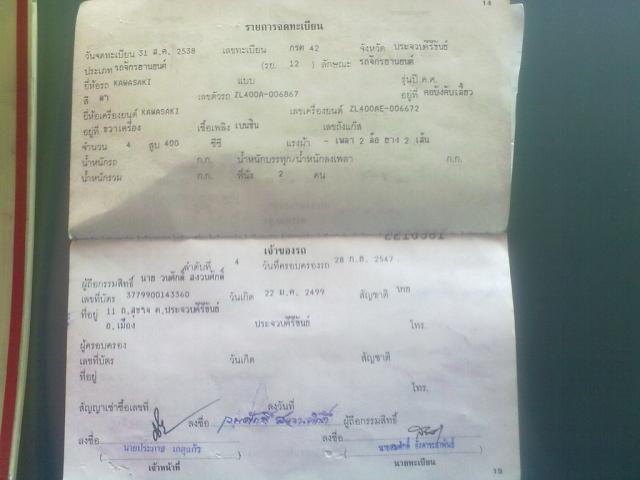 14
รายการจดทะเบียน
วันจดทะเบียน 31 ส.ค. 2538 เลขทะเบียน กรต 42 จังหวัด ประจวบคีรีขันธ์
ประเภท รถจักรยานยนต์ (รย. 12 ) ลักษณะ รถจักรยานยนต์
ยี่ห้อรถ KAWASAKI แบบ รุ่นปี ค.ศ.
สี ดำ เลขตัวรถ ZL400A-006867 อยู่ที่ คอบังคับเลี้ยว
ยี่ห้อเครื่องยนต์ KAWASAKI เลขเครื่องยนต์ ZL400AE-006672
อยู่ที่ ขวาเครื่อง เชื้อเพลิง เบนซิน เลขถังแก๊ส
จำนวน 4 สูบ 400 ซีซี แรงม้า - เพลา 2 ล้อ ยาง 2 เส้น
น้ำหนักรถ ก.ก. น้ำหนักบรรทุก/น้ำหนักลงเพลา ก.ก.
น้ำหนักรวม ก.ก. ที่นั่ง 2 คน
เจ้าของรถ
ลำดับที่ 4 วันที่ครอบครองรถ 28 ก.ย. 2547
ผู้ถือกรรมสิทธิ์ นาย วนศักดิ์ สงวนศักดิ์
เลขที่บัตร 3779900143360 วันเกิด 22 ม.ค. 2499 สัญชาติ ไทย
ที่อยู่ 11 ถ.สุขใจ ต.ประจวบคีรีขันธ์ โทร.
อ.เมือง ประจวบคีรีขันธ์
ผู้ครอบครอง
เลขที่บัตร วันเกิด สัญชาติ
ที่อยู่
โทร.
สัญญาเช่าซื้อเลขที่ ลงวันที่
ลงชื่อ ผู้ถือกรรมสิทธิ์
ลงชื่อ ลงชื่อ
เจ้าหน้าที่ นายทะเบียน